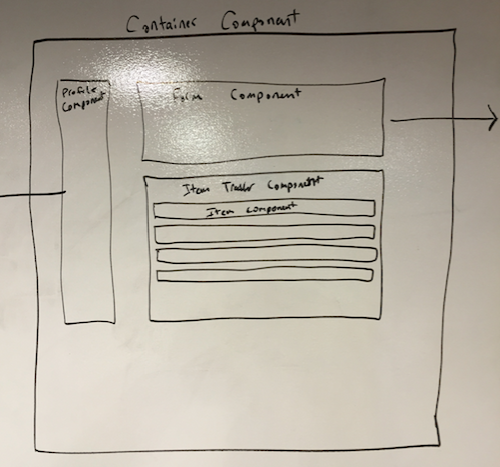 Container Component
Profile
Component
Form Component
Item Tracker Component
Item Component